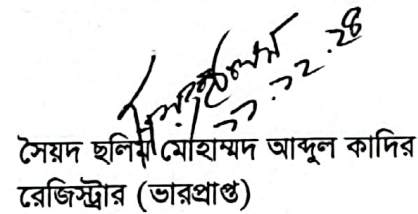 ১১.১২.২৪
সৈয়দ ছলিম মোহাম্মদ আব্দুল কাদির
রেজিস্ট্রার (ভারপ্রাপ্ত)